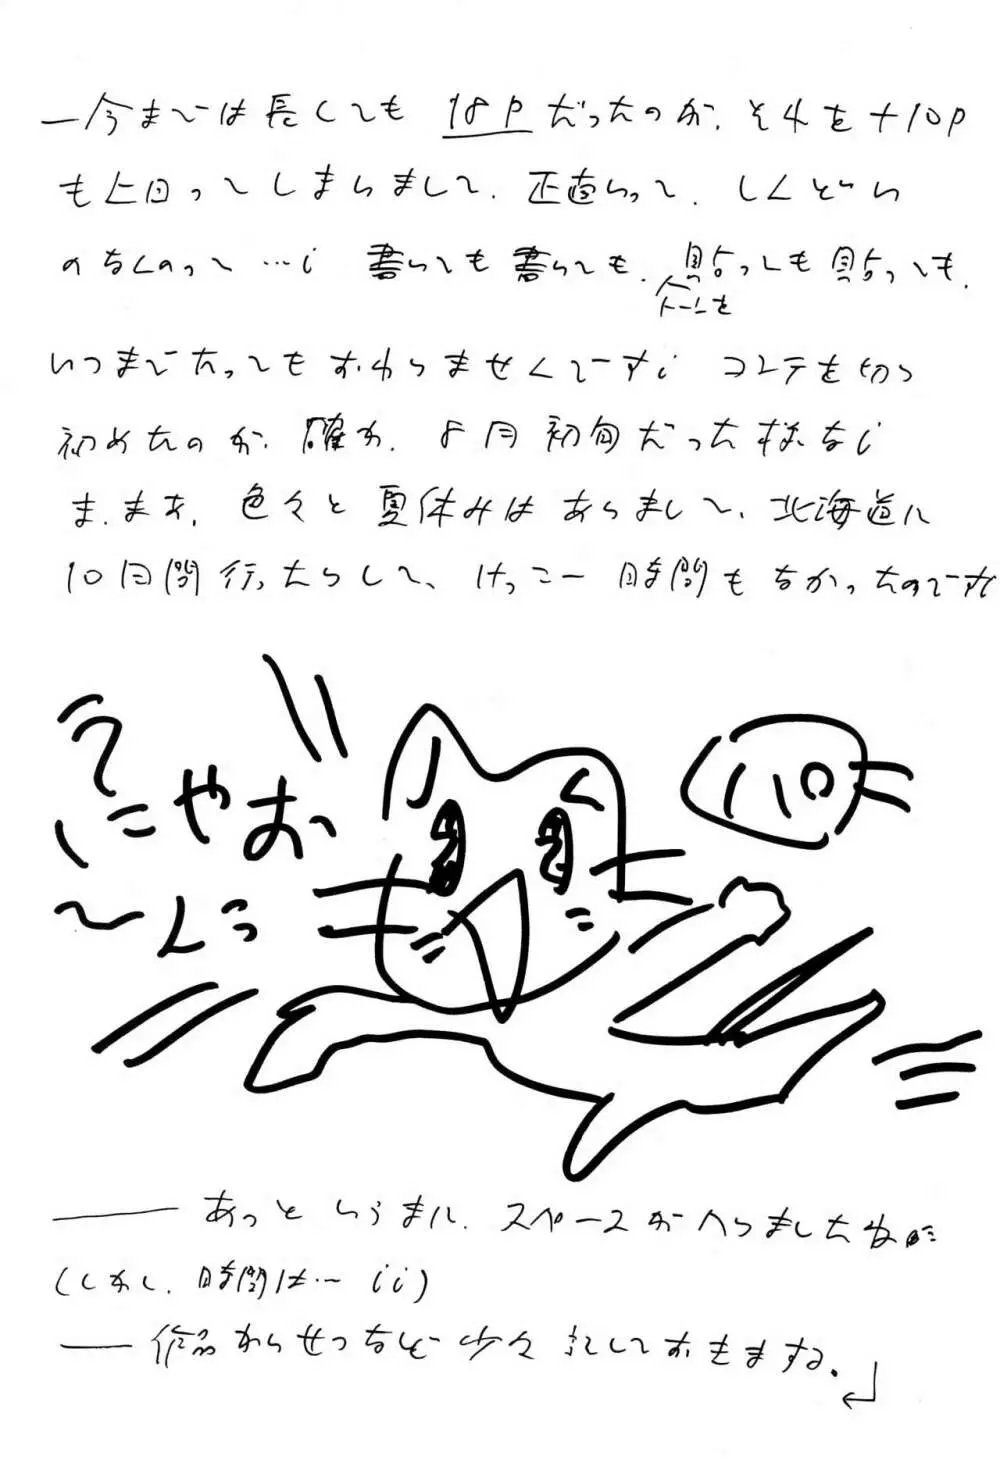 ―今までは長くても 18Pだったのが、それを+10P
も上回ってしまいまして、正直いって、しんどい
のなんのって…! 書いても書いても、貼っても貼っても、
トーンを
いつまでたってもおわりませんでーす! コンテを切り
初めたのが、確か、8月初旬だった様なし
ま、まあ、色々と夏休みはありまして、北海道に
10日間行ったりして、けっこー時間もなかったのでーす
にゃお
〜んっ
110
―― あっというまに、スペースがへりましたね
(しかし、時間は… !!)
―― 作品かいせつなど少々記しておきまする。